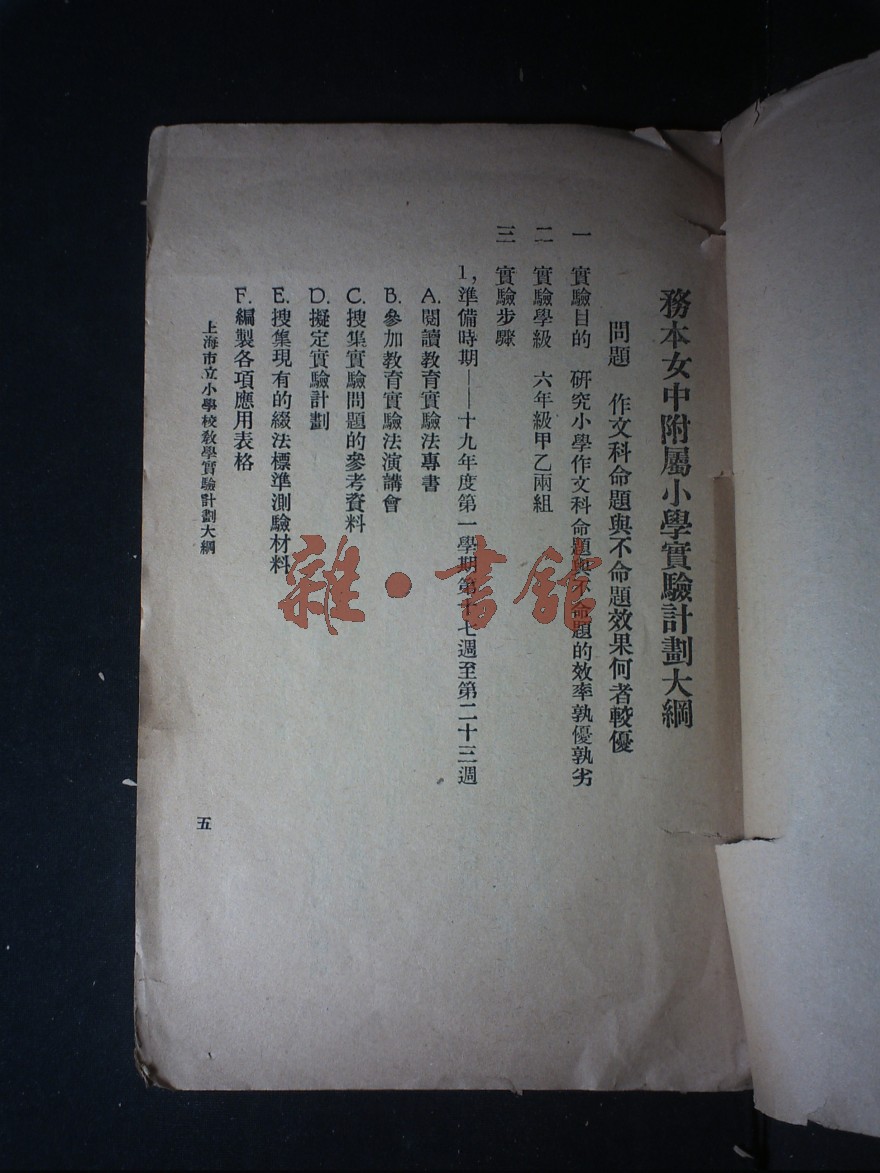 務本女中附屬小學實驗計劃大綱
問題　作文科命題與不命題效果何者較優
一　實驗目的　研究小學作文科命題與不命題的效率孰優孰劣
二　實驗學級　六年級甲乙兩組
三　實驗步驟
1，準備時期——十九年度第一學期第十七週至第二十三週
A. 閱讀教育實驗法專書
B. 參加教育實驗法演講會
C. 搜集實驗問題的參考資料
D. 擬定實驗計劃
E. 搜集現有的綴法標準測驗材料
F. 編製各項應用表格
上海市立小學校教學實驗計劃大綱
五
雜·書館